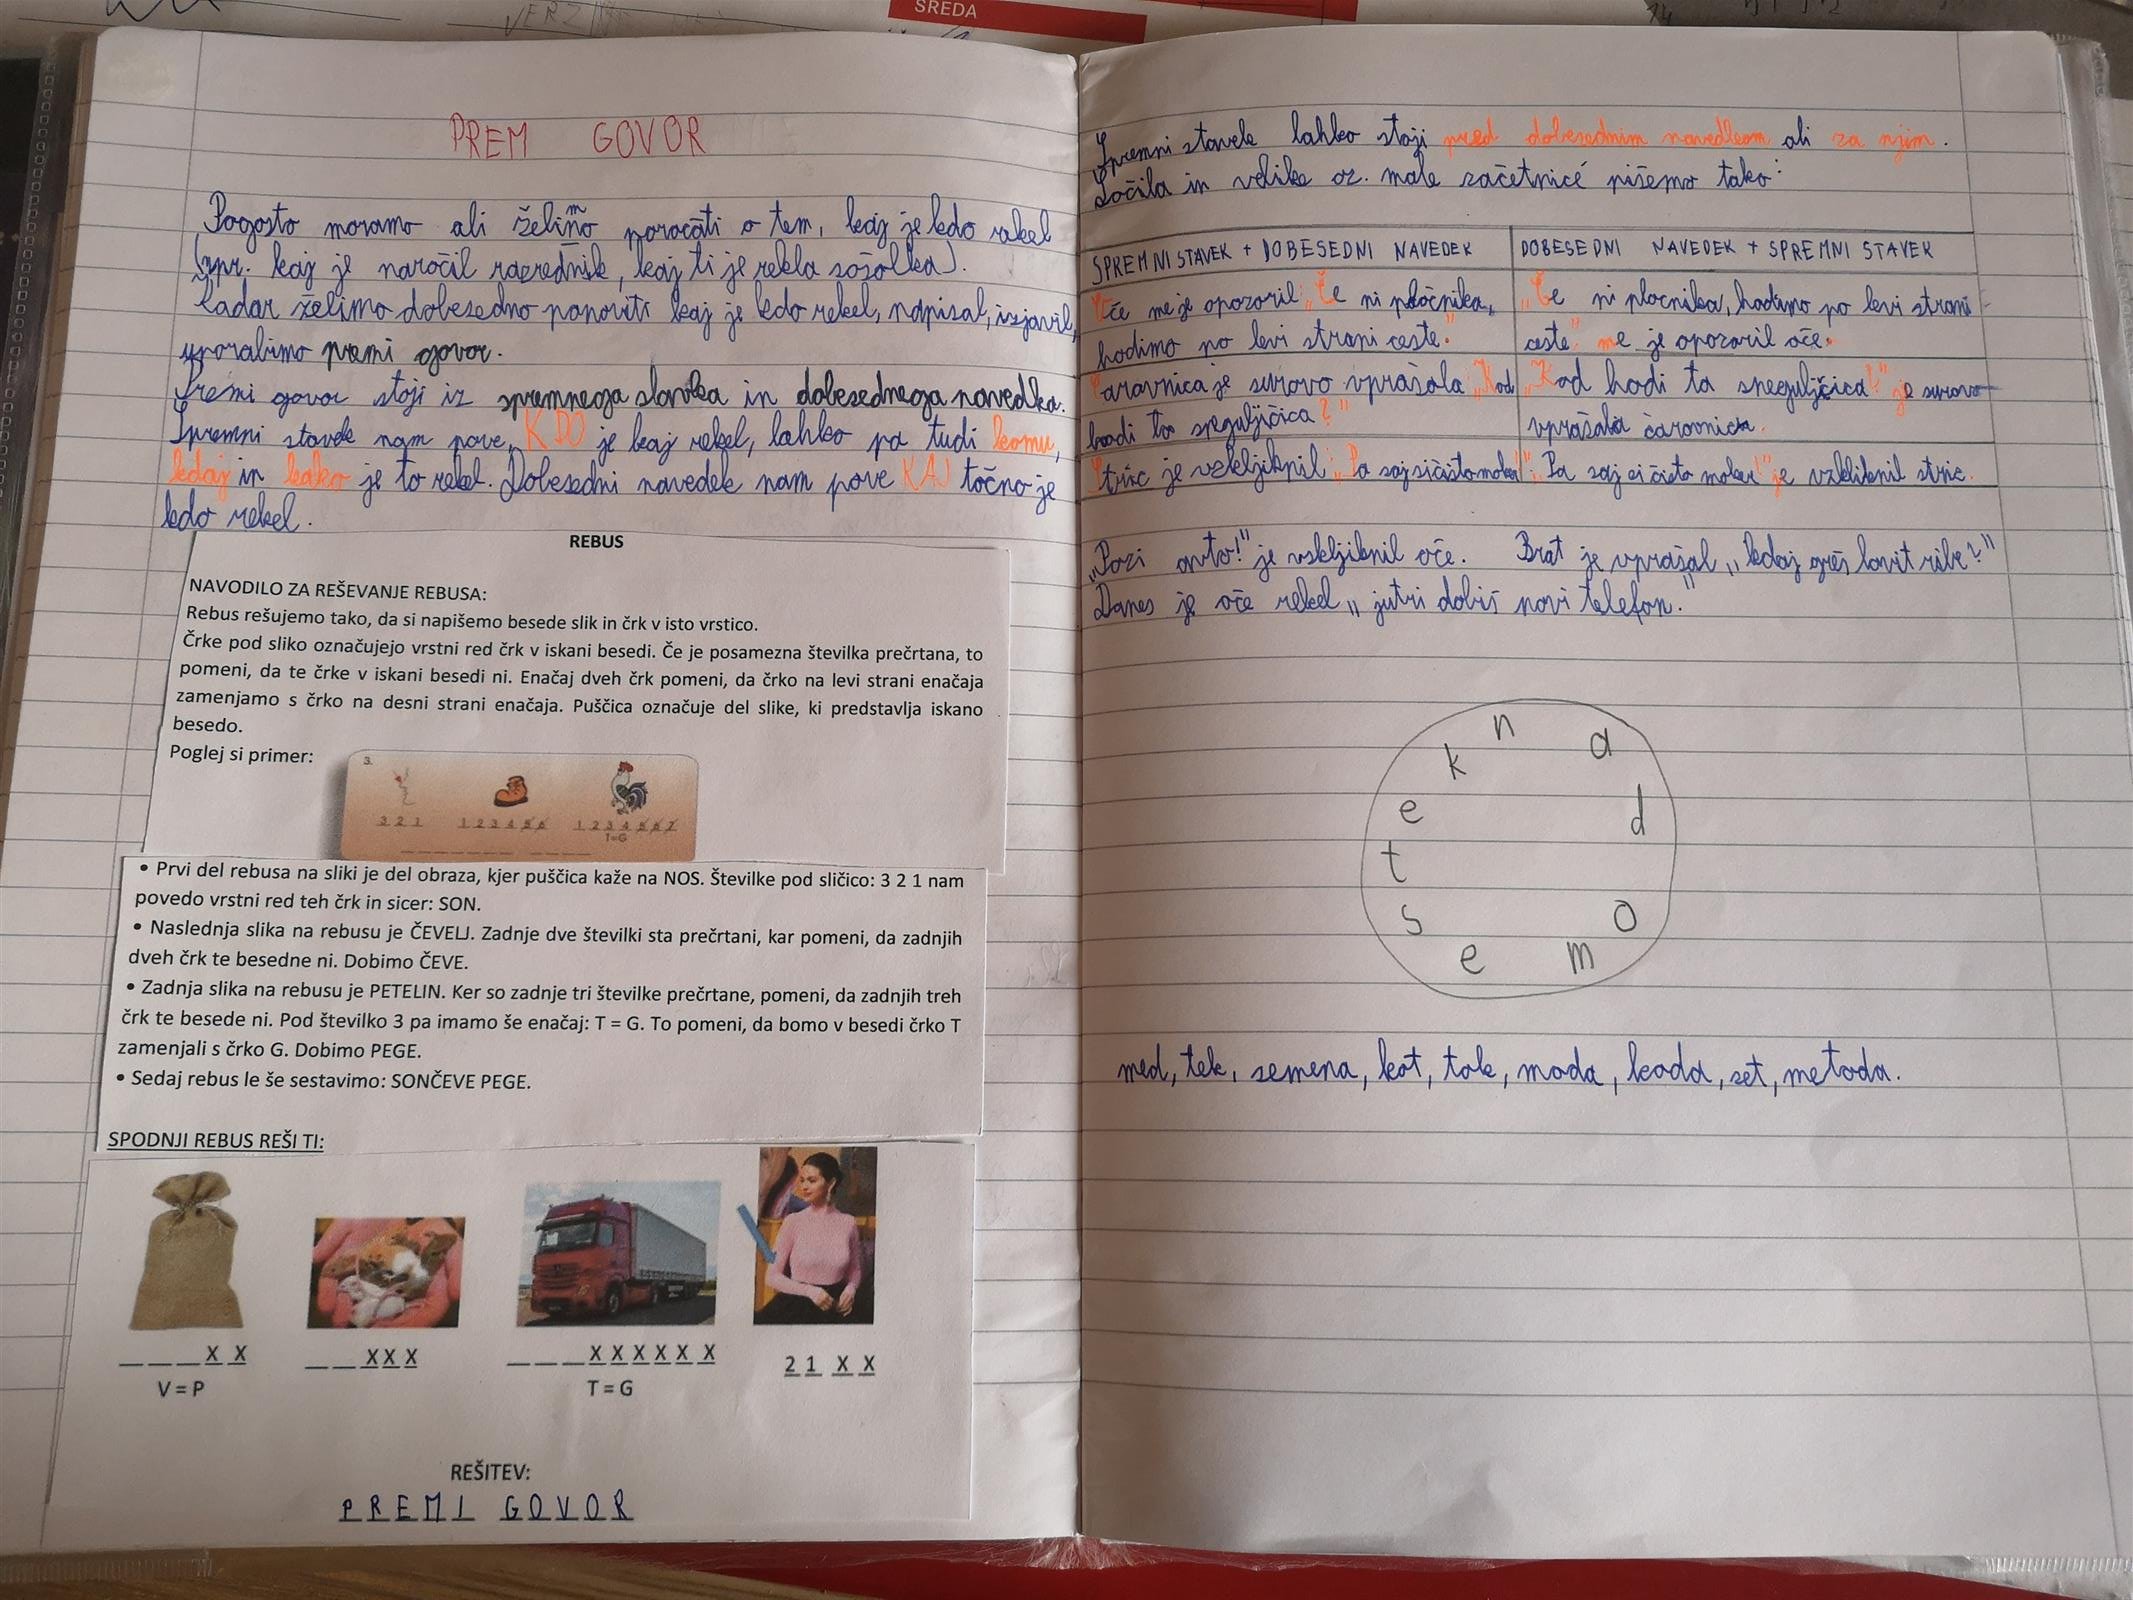 SREDA
PREM GOVOR
Pogosto moramo ali želimo poročati o tem, kaj je kdo rekel
(npr. kaj je naročil razrednik, kaj ti je rekla sošolka).
Kadar želimo dobesedno ponoviti kaj je kdo rekel, napisal, izjavil,
uporabimo premi govor.
Premi govor stoji iz spremnega stavka in dobesednega navedka.
Spremni stavek nam pove, KDO je kaj rekel, lahko pa tudi komu,
kdaj in kako je to rekel. Dobesedni navedek nam pove KAJ točno je
kdo rekel.
REBUS
NAVODILO ZA REŠEVANJE REBUSA:
Rebus rešujemo tako, da si napišemo besede slik in črk v isto vrstico.
Črke pod sliko označujejo vrstni red črk v iskani besedi. Če je posamezna številka prečrtana, to
pomeni, da te črke v iskani besedi ni. Enačaj dveh črk pomeni, da črko na levi strani enačaja
zamenjamo s črko na desni strani enačaja. Puščica označuje del slike, ki predstavlja iskano
besedo.
Poglej si primer:
3.
3 2 1 1 2 3 4 5 6 1 2 3 4 5 6 7
T=G
• Prvi del rebusa na sliki je del obraza, kjer puščica kaže na NOS. Številke pod sličico: 3 2 1 nam
povedo vrstni red teh črk in sicer: SON.
• Naslednja slika na rebusu je ČEVELJ. Zadnje dve številki sta prečrtani, kar pomeni, da zadnjih
dveh črk te besedne ni. Dobimo ČEVE.
• Zadnja slika na rebusu je PETELIN. Ker so zadnje tri številke prečrtane, pomeni, da zadnjih treh
črk te besede ni. Pod številko 3 pa imamo še enačaj: T = G. To pomeni, da bomo v besedi črko T
zamenjali s črko G. Dobimo PEGE.
• Sedaj rebus le še sestavimo: SONČEVE PEGE.
SPODNJI REBUS REŠI TI:
_ _ _ X X _ _ X X X _ _ _ X X X X X X 2 1 X X
V = P T = G
REŠITEV:
PREMI GOVOR
Spremni stavek lahko stoji pred dobesednim navedkom ali za njim.
Ločila in velike oz. male začetnice pišemo tako:
SPREMNI STAVEK + DOBESEDNI NAVEDEK DOBESEDNI NAVEDEK + SPREMNI STAVEK
Oče me je opozoril: „Če ni pločnika, „Če ni plocnika, hodimo po levi strani
hodimo po levi strani ceste." ceste" me je opozoril oče.
Čarovnica je surovo vprašala „Kod „Kod hodi ta sneguljčica?" je surovo
hodi ta sneguljčica?" vprašala čarovnica.
Stric je vzkljiknil: „Pa saj si čisto moker!" „Pa saj si čisto moker!" je vzkliknil stric.
„Pazi avto!" je vzkljiknil oče. Brat je vprašal „kdaj greš lovit ribe?"
Danes je oče rekel „jutri dobiš novi telefon."
n
k a
e d
t
s o
e m
med, tek, semena, kot, tok, moda, koda, set, metoda.